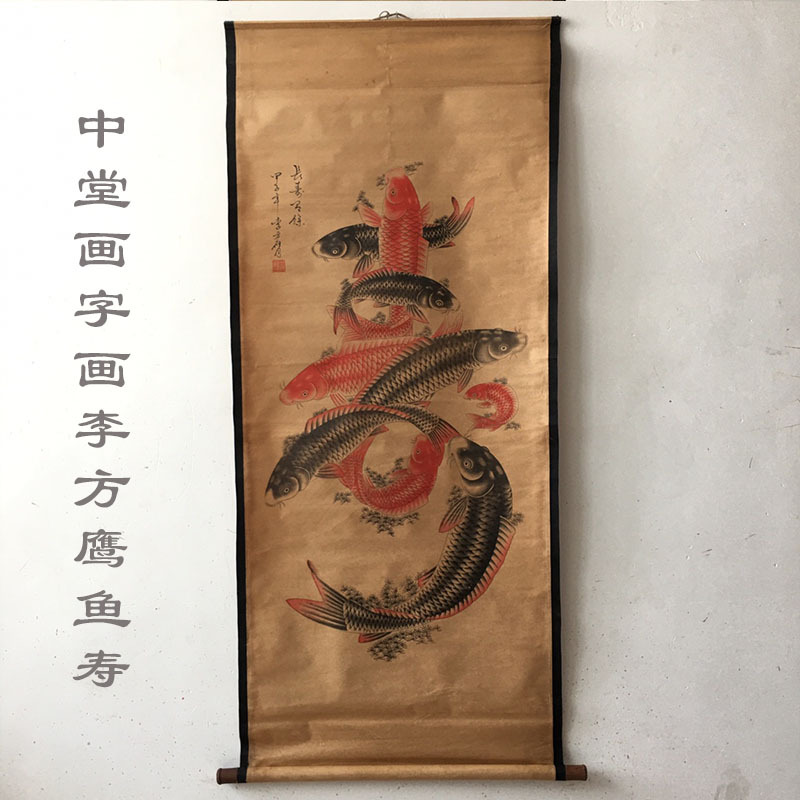 中堂画字画李方鹰鱼寿
長壽有餘
甲子年 李方膺